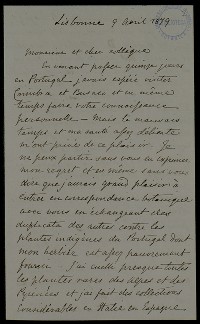 Lisbonne 9 avril 1879
Monsieur et cher collègue
En venant passer quinze jours
en Portugal j'avais espéré visiter
Coimbra et Busaco et en même
temps faire votre connaissance
personnelle - Mais le mauvais
temps et ma santé assez débile
m'ont privé de ce plaisir. Je
ne peux partir sans vous en exprimer
mon regret et en même sans vous
dire que j'aurais grand plaisir à
entrer en correspondance botanique
avec vous en échangeant des
duplicata des autres contre les
plantes indigènes du Portugal dont
mon herbier est assez pauvrement
fourni - J'ai cueilli presque toutes
les plantes rares des Alpes et des
Pyrénées et j'ai fait des collections
considérables en Italie en Espagne